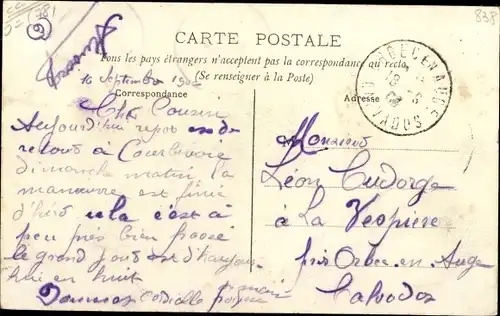 838
CARTE POSTALE
Tous les pays étrangers n'acceptent pas la correspondance au recto
(Se renseigner à la Poste)
Correspondance
Adresse
16 Septembre
Cher Cousin
Aujourd'hui repos
retour à Courbevoie
dimanche matin, la
manœuvre est finie
c'est à
peu près bien passé
le grand jour est d'aujour
hui en huit
cordialle
Monsieur
Léon Cudorge
à La Vespiere
près Orbec en Auge
Calvados